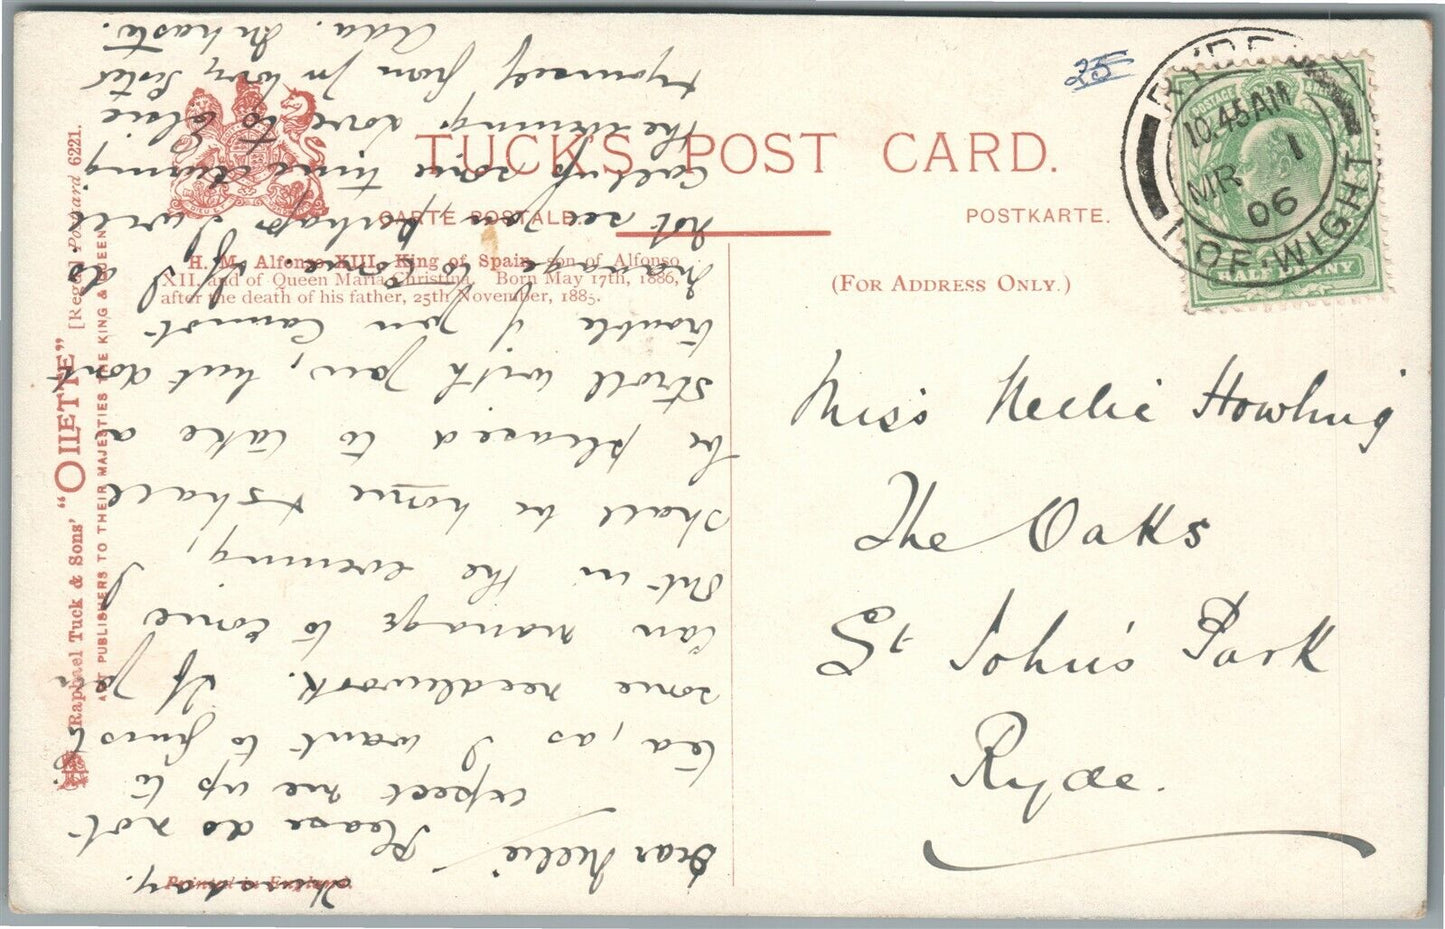 TUCK'S POST CARD.
CARTE POSTALE.
POSTKARTE.
H. M. Alfonso XIII., King of Spain, son of Alfonso
XII. and of Queen Maria Christina. Born May 17th, 1886,
after the death of his father, 25th November, 1885.
(FOR ADDRESS ONLY.)
Raphael Tuck & Sons' "OILETTE" [Regd.] Postcard 6221.
ART PUBLISHERS TO THEIR MAJESTIES THE KING & QUEEN.
Printed in England.
25
RYDE
10.45AM
MR 1
06
I. OF. WIGHT
POSTAGE
HALF PENNY
Miss Nellie Howling
The Oaks
St John's Park
Ryde.
Thursday.
Dear Nellie Please do not
expect me up to
tea, as I want to finish
some needlework. If you
can manage to come
out in the evening, I
shall be home & shall
be pleased to take a
stroll with you, but don't
trouble if you cannot
manage to come. If I do
not see you perhaps I will
call up some time during
the evening. Love to Elsie
yourself from Yr lovg Sister
Ada. In haste.